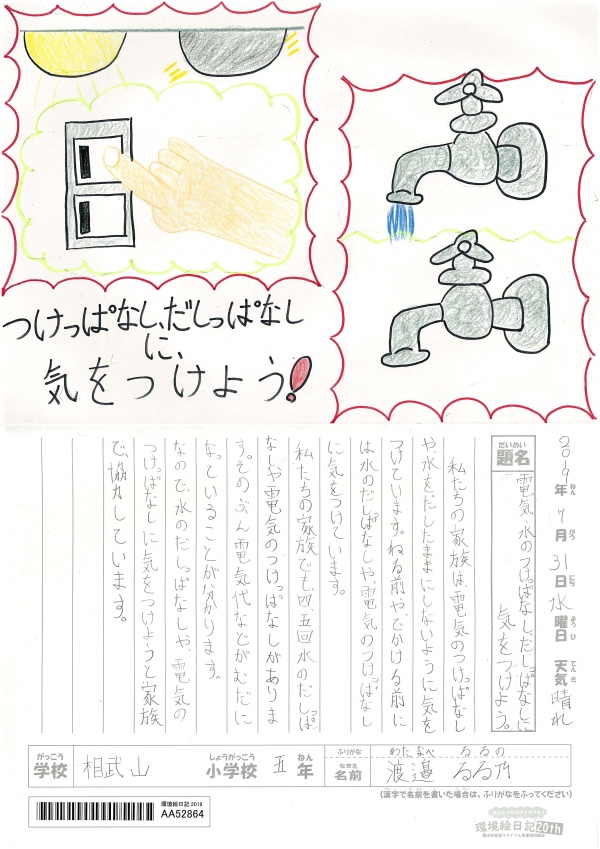 つけっぱなし、だしっぱなし
に、
気をつけよう!
2019年ねん7月がつ31日にち水曜日ようび 天気てんき晴れ
だいめい
題名
電気・水のつけっぱなし、だしっぱなしに
気をつけよう。
私たちの家族は、電気のつけっぱなし
や、水をだしたままにしないように気を
つけています。ねる前や、でかける前に
は水のだしぱなしや、電気のつけっぱなし
に気をつけています。
私たちの家族でも、四、五回水のだしっぱ
なしや電気のつけっぱなしがありま
す。そのぶん電気代などがむだに
なっていることが分かります。
なので、水のだしっぱなしや、電気の
つけっぱなしに気をつけようと家族
で、協力しています。
がっこう
学校
相武山
しょうがっこう
小学校
五
ねん
年
ふりがな
わたなべ るるの
なまえ
名前
渡邉 るる乃
(漢字で名前を書いた場合は、ふりがなをふってください)
環境絵日記2019
AA52864
環境絵日記20th